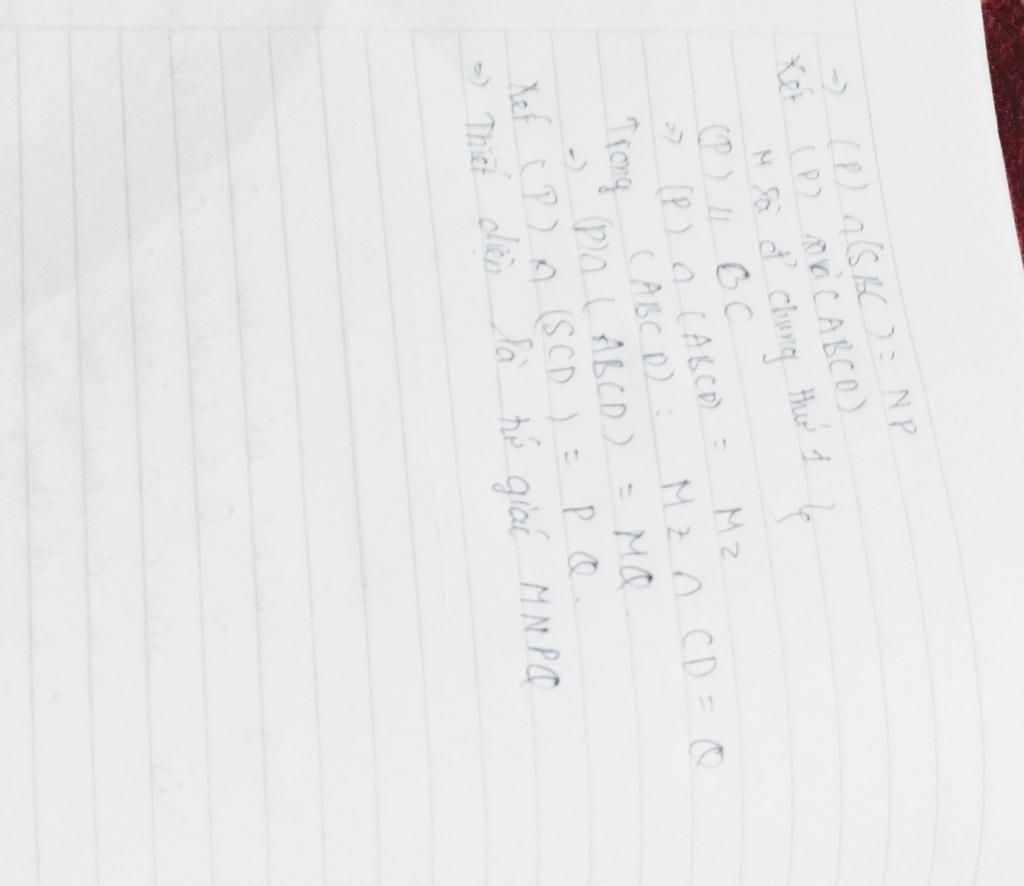 => (P) ∩ (SBC) = NP
Xét (P) và (ABCD)
M là đ' chung thứ 1 }
(P) // BC
=> (P) ∩ (ABCD) = Mz
Trong (ABCD): Mz ∩ CD = Q
=> (P) ∩ (ABCD) = MQ.
Xét (P) ∩ (SCD) = PQ.
=> Thiết diện là tứ giác MNPQ